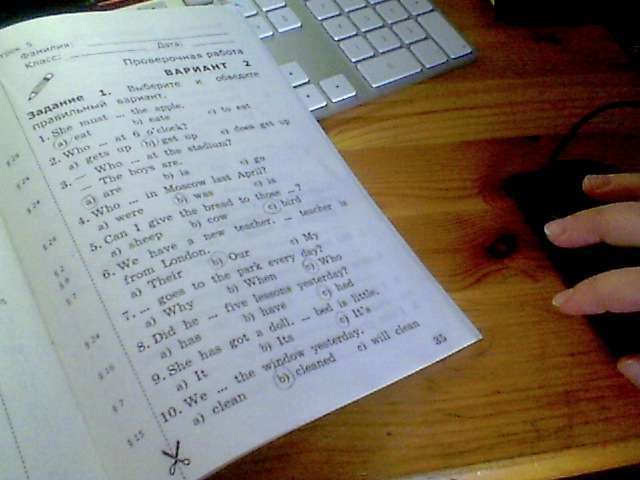 Фамилия: Дата:
Класс:
Проверочная работа
ВАРИАНТ 2
Задание 1. Выберите и обведите
правильный вариант.
1. She must ... the apple.
a) eat b) eats c) to eat
2. Who ... at 6 o'clock?
a) gets up b) get up c) does get up
3. — Who ... at the stadium?
— The boys are.
a) are b) is c) go
4. Who ... in Moscow last April?
a) were b) was c) is
5. Can I give the bread to those ...?
a) sheep b) cow c) bird
6. We have a new teacher. ... teacher is
from London.
a) Their b) Our c) My
7. ... goes to the park every day?
a) Why b) When c) Who
8. Did he ... five lessons yesterday?
a) has b) have c) had
9. She has got a doll. ... bed is little.
a) It b) Its c) It's
10. We ... the window yesterday.
a) clean b) cleaned c) will clean
35